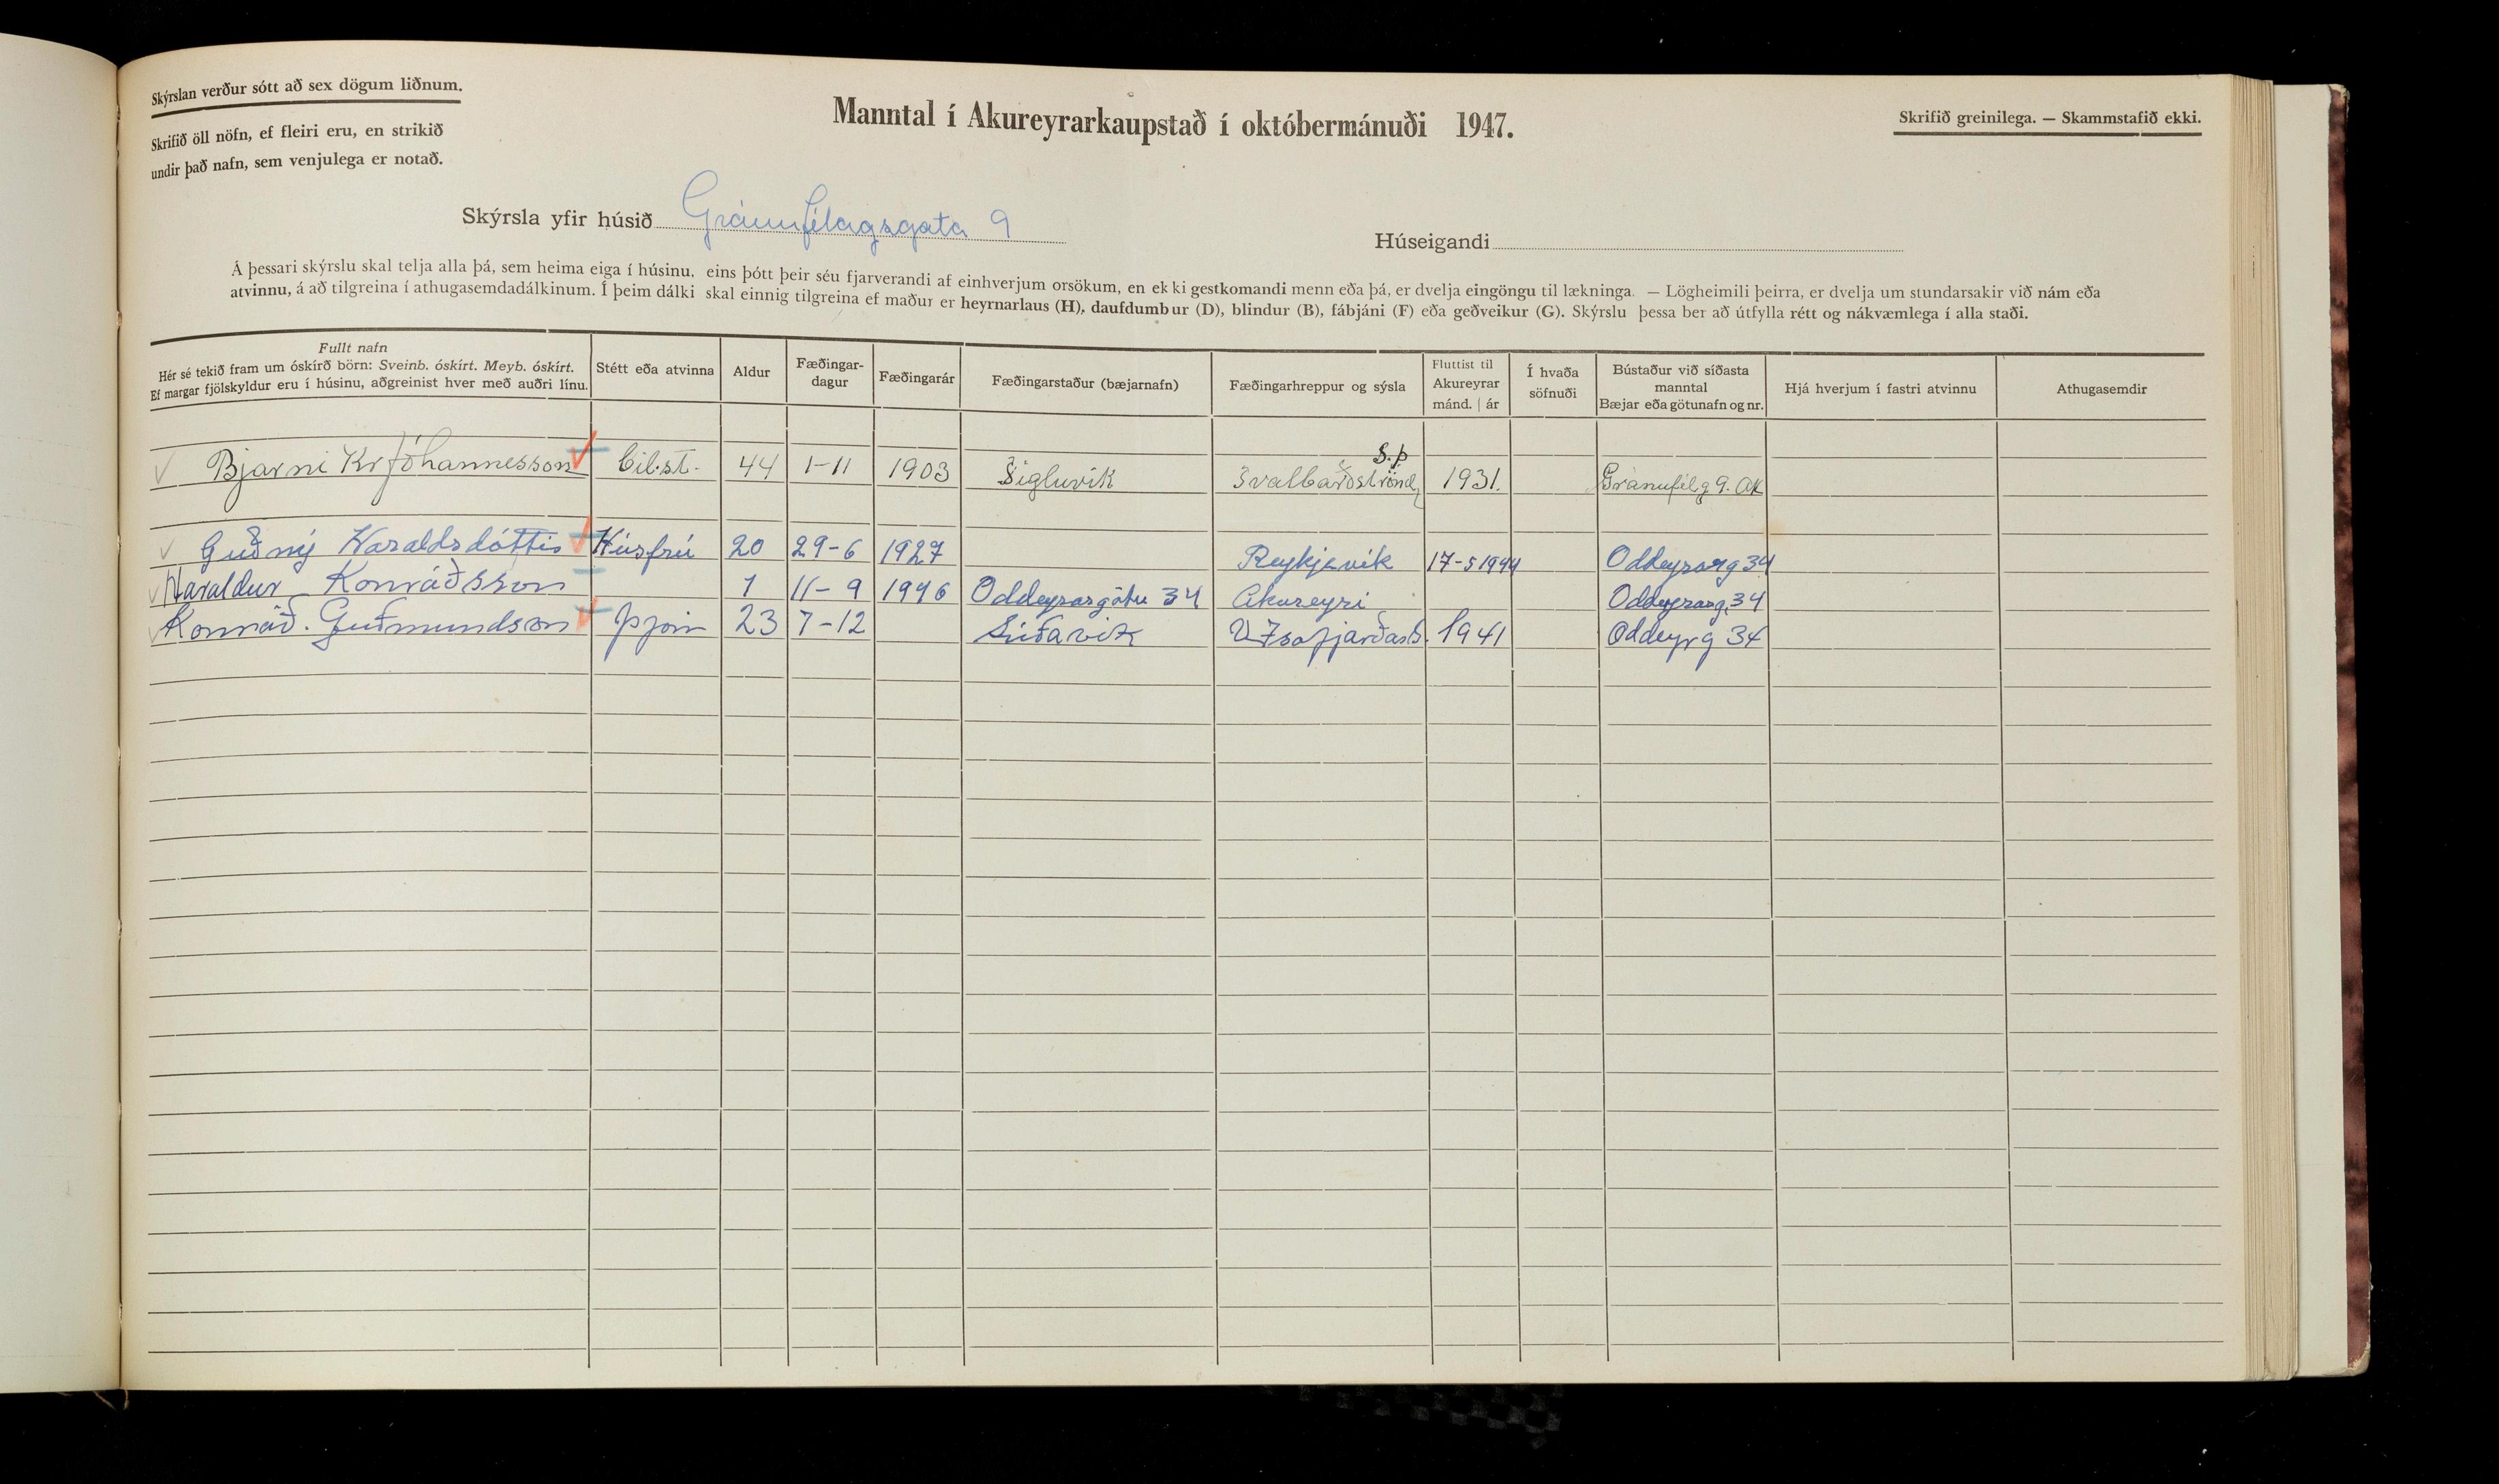 Skýrslan verður sótt að sex dögum liðnum.
Skrifið öll nöfn, ef fleiri eru, en strikið
undir það nafn, sem venjulega er notað.
Manntal í Akureyrarkaupstað í októbermánuði 1947.
Skrifið greinilega. — Skammstafið ekki.
Skýrsla yfir húsið Gránufélagsgata 9
Húseigandi
Á þessari skýrslu skal telja alla þá, sem heima eiga í húsinu, eins þótt þeir séu fjarverandi af einhverjum orsökum, en ekki gestkomandi menn eða þá, er dvelja eingöngu til lækninga. — Lögheimili þeirra, er dvelja um stundarsakir við nám eða
atvinnu, á að tilgreina í athugasemdadálkinum. Í þeim dálki skal einnig tilgreina ef maður er heyrnarlaus (H), daufdumbur (D), blindur (B), fábjáni (F) eða geðveikur (G). Skýrslu þessa ber að útfylla rétt og nákvæmlega í alla staði.
Fullt nafn
Hér sé tekið fram um óskírð börn: Sveinb. óskírt. Meyb. óskírt.
Ef margar fjölskyldur eru í húsinu, aðgreinist hver með auðri línu.
Stétt eða atvinna
Aldur
Fæðingar-
dagur
Fæðingarár
Fæðingarstaður (bæjarnafn)
Fæðingarhreppur og sýsla
Fluttist til
Akureyrar
mánd. | ár
Í hvaða
söfnuði
Bústaður við síðasta
manntal
Bæjar eða götunafn og nr.
Hjá hverjum í fastri atvinnu
Athugasemdir
S.Þ
Bjarni Kr Jóhannesson bil.st. 44 1-11 1903 Sigluvík Svalbarðströnd 1931. Gránufélg 9. Ak
Guðný Haraldsdóttir Húsfrú 20 29-6 1927 Reykjavík 17-5 1944 Oddeyrarg 34
Haraldur Konráðsson 1 11-9 1946 Oddeyrargötu 34 Akureyri Oddeyrarg. 34
Konráð. Guðmundsson þjón 23 7-12 Súðavík Ísafjarðars. 1941 Oddeyrg 34